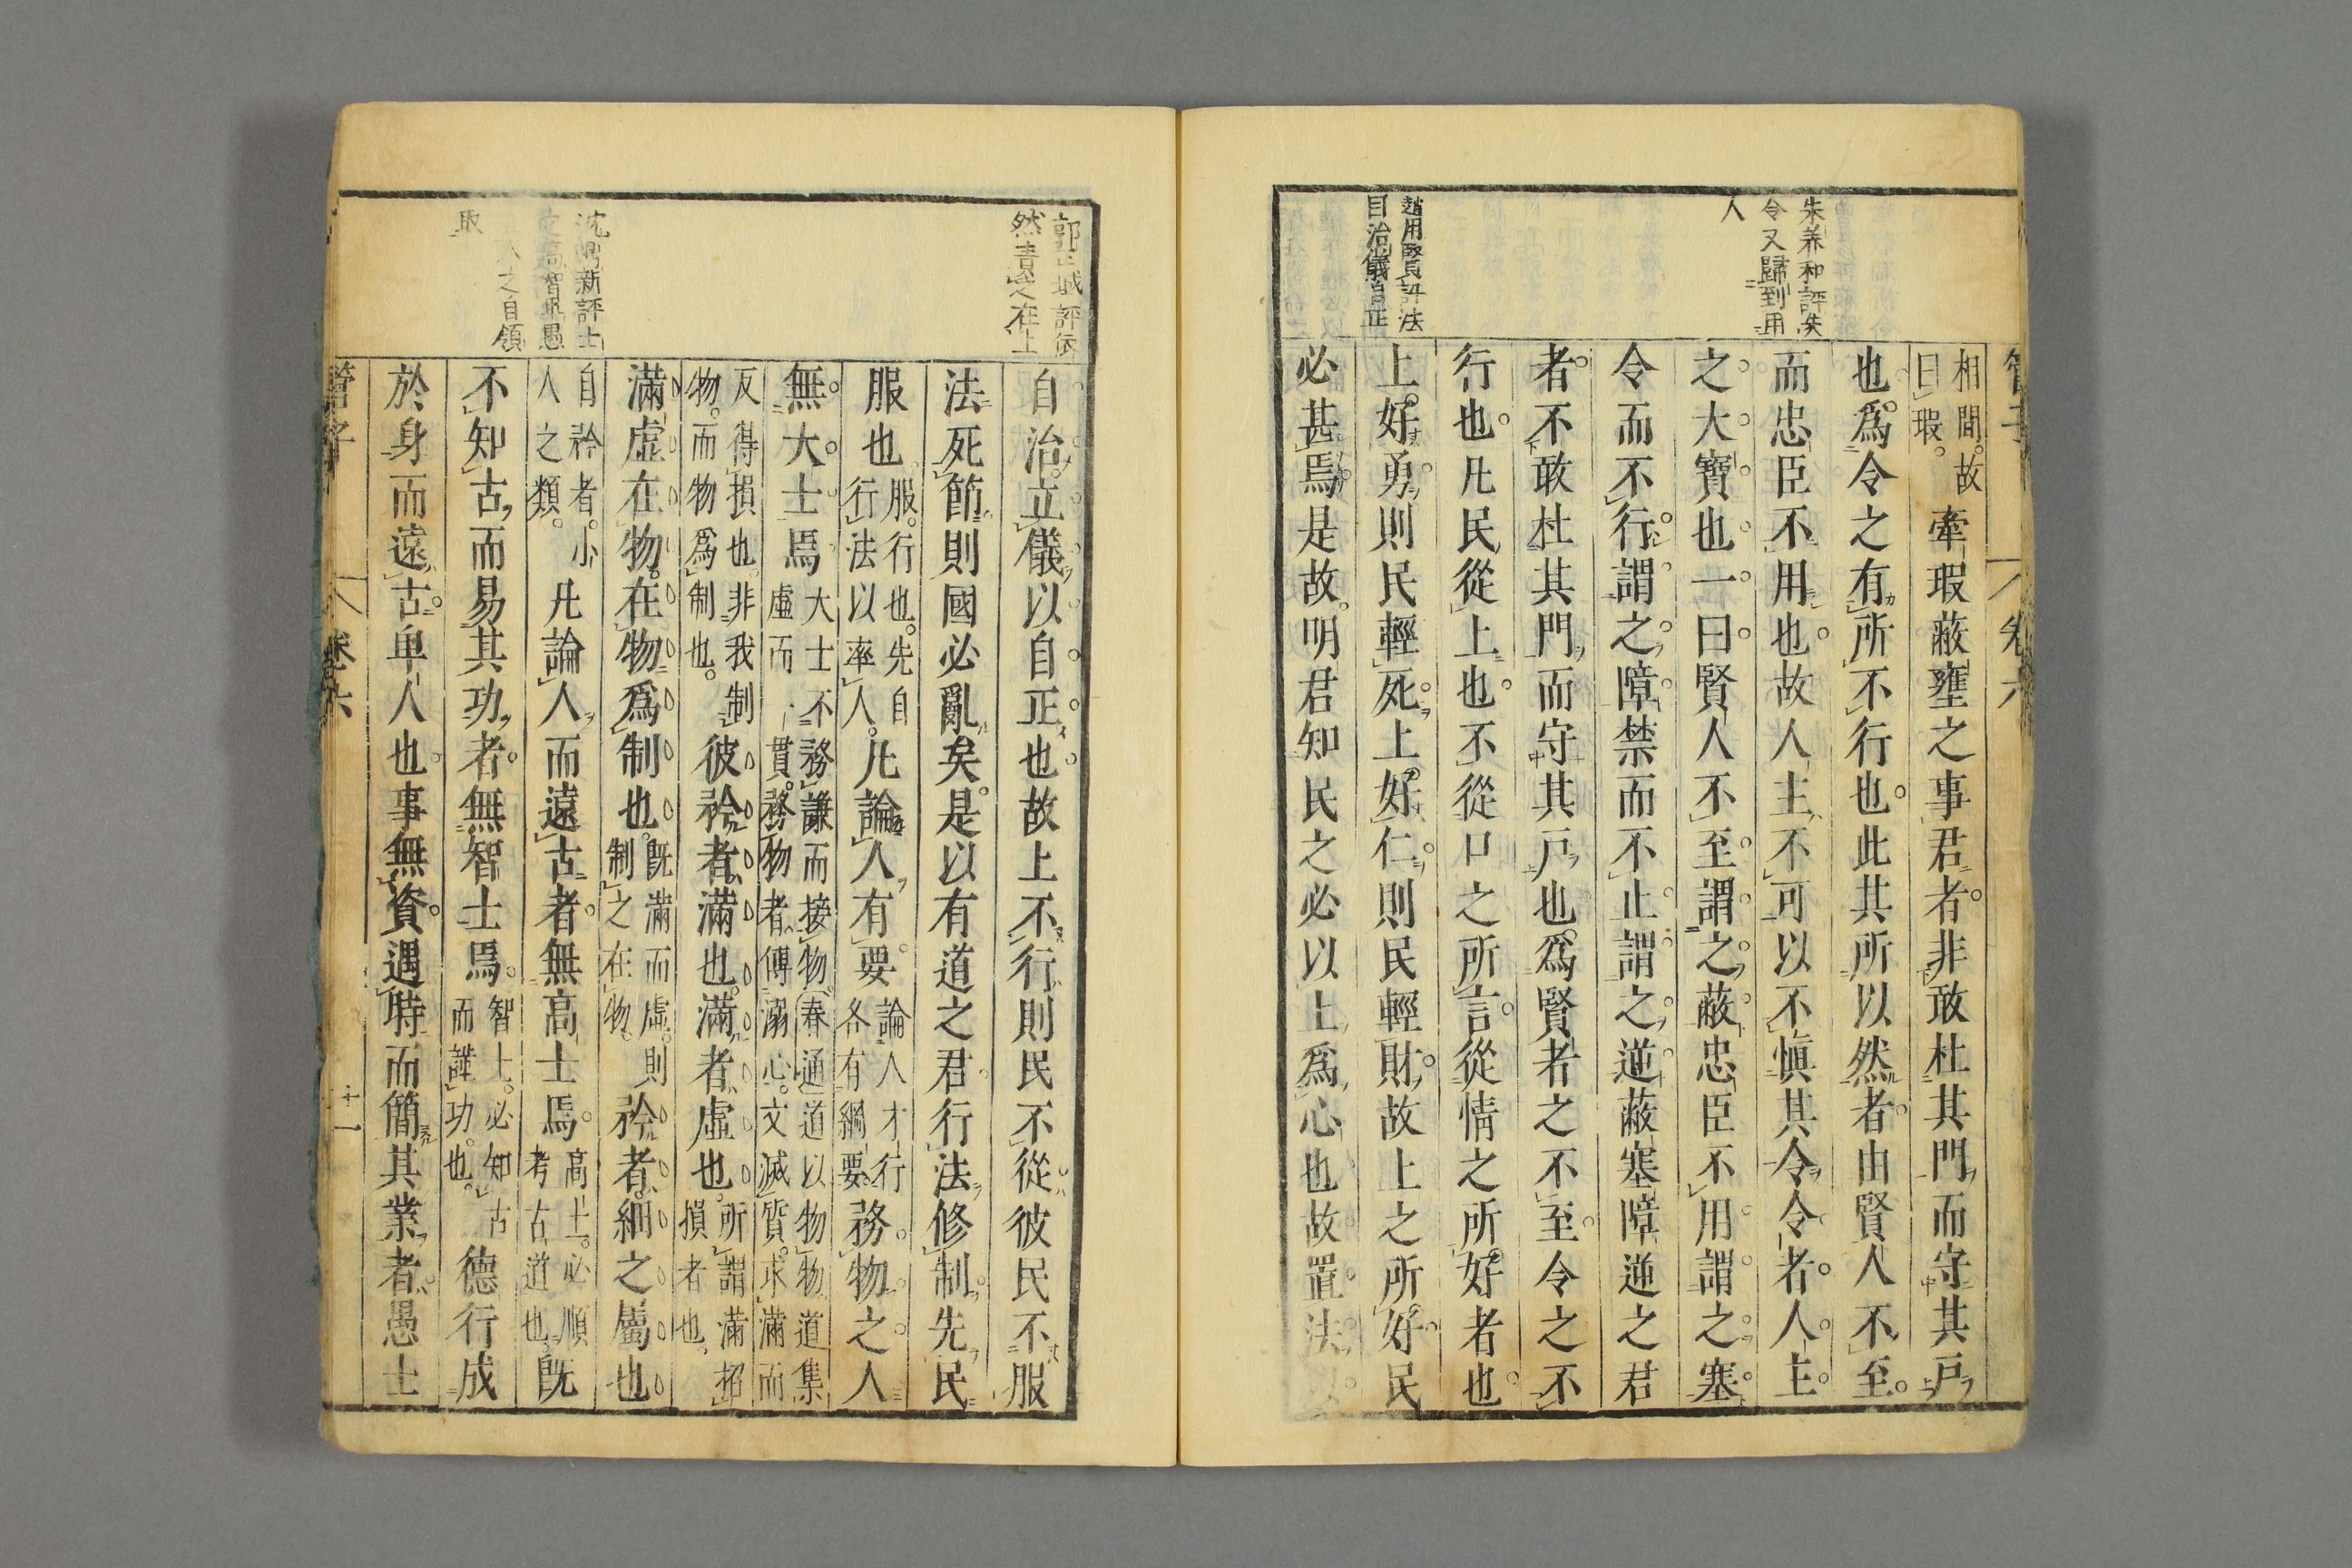 朱養和評失
令又歸到用
人
趙用賢評法
自治儀自正
管子
卷六
相間故曰瑕牽瑕蔽壅之事君者非敢杜其門而守其戸
也爲令之有所不行也此其所以然者由賢人不至
而忠臣不用也故人主不可以不愼其令令者人主
之大寶也一曰賢人不至謂之蔽忠臣不用謂之塞
令而不行謂之障禁而不止謂之逆蔽塞障逆之君
者不敢杜其門而守其戸也爲賢者之不至令之不
行也凡民從上也不從口之所言從情之所好者也
上好勇則民輕死上好仁則民輕財故上之所好民
必甚焉是故明君知民之必以上爲心也故置法以
郭正域評依
然責之在上
沈鼎新評士
高智與愚
人之自領
取
自治立儀以自正也故上不行則民不從彼民不服
法死節則國必亂矣是以有道之君行法修制先民
服也服行也先自行法以率人凡論人有要論人才行各有綱要務物之人
無大士焉大士不務謙而接物春通道以物物道集虛而貫務物者傅溺心文滅質求滿而
反得損也非我制物而物爲制也彼矜者滿也滿者虛也所謂滿招損者也
滿虛在物在物爲制也既滿而虛則制之在物矜者細之屬也
自矜者小人之類凡論人而遠古者無高士焉高士必順考古道也既
不知古而易其功者無智士焉智士必知古而謹功也德行成
於身而遠古卑人也事無資遇時而簡其業者愚士
管子
卷六
十一